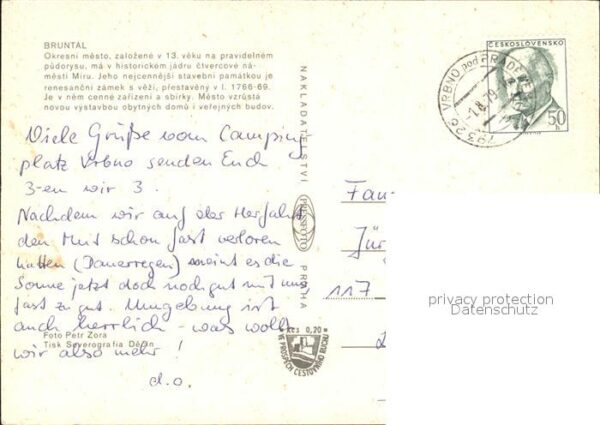 BRUNTÁL
Okresní město, založené v 13. věku na pravidelném
půdorysu, má v historickém jádru čtvercové ná-
městí Míru. Jeho nejcennější stavební památkou je
renesanční zámek s věží, přestavěný v l. 1766-69.
Je v něm cenné zařízení a sbírky. Město vzrůstá
novou výstavbou obytných domů i veřejných budov.
Viele Grüße vom Camping
platz Vrbno senden Euch
3-en wir 3.
Nachdem wir auf der Herfahrt
den Mut schon fast verloren
hatten (Dauerregen) meint es die
Sonne jetzt doch noch gut mit uns,
fast zu gut. Umgebung ist
auch herrlich - was woll
wir also mehr!
d.o.
Foto Petr Zora
Tisk Severografia Děčín
NAKLADATELSTVÍ PRESSFOTO PRAHA
Kčs 0,20
VE PROSPĚCH CESTOVNÍHO RUCHU
ČESKOSLOVENSKO
50
h
793 26 VRBNO pod PRADĚDEM
-1.8.79
Fam
Jür
117
privacy protection
Datenschutz